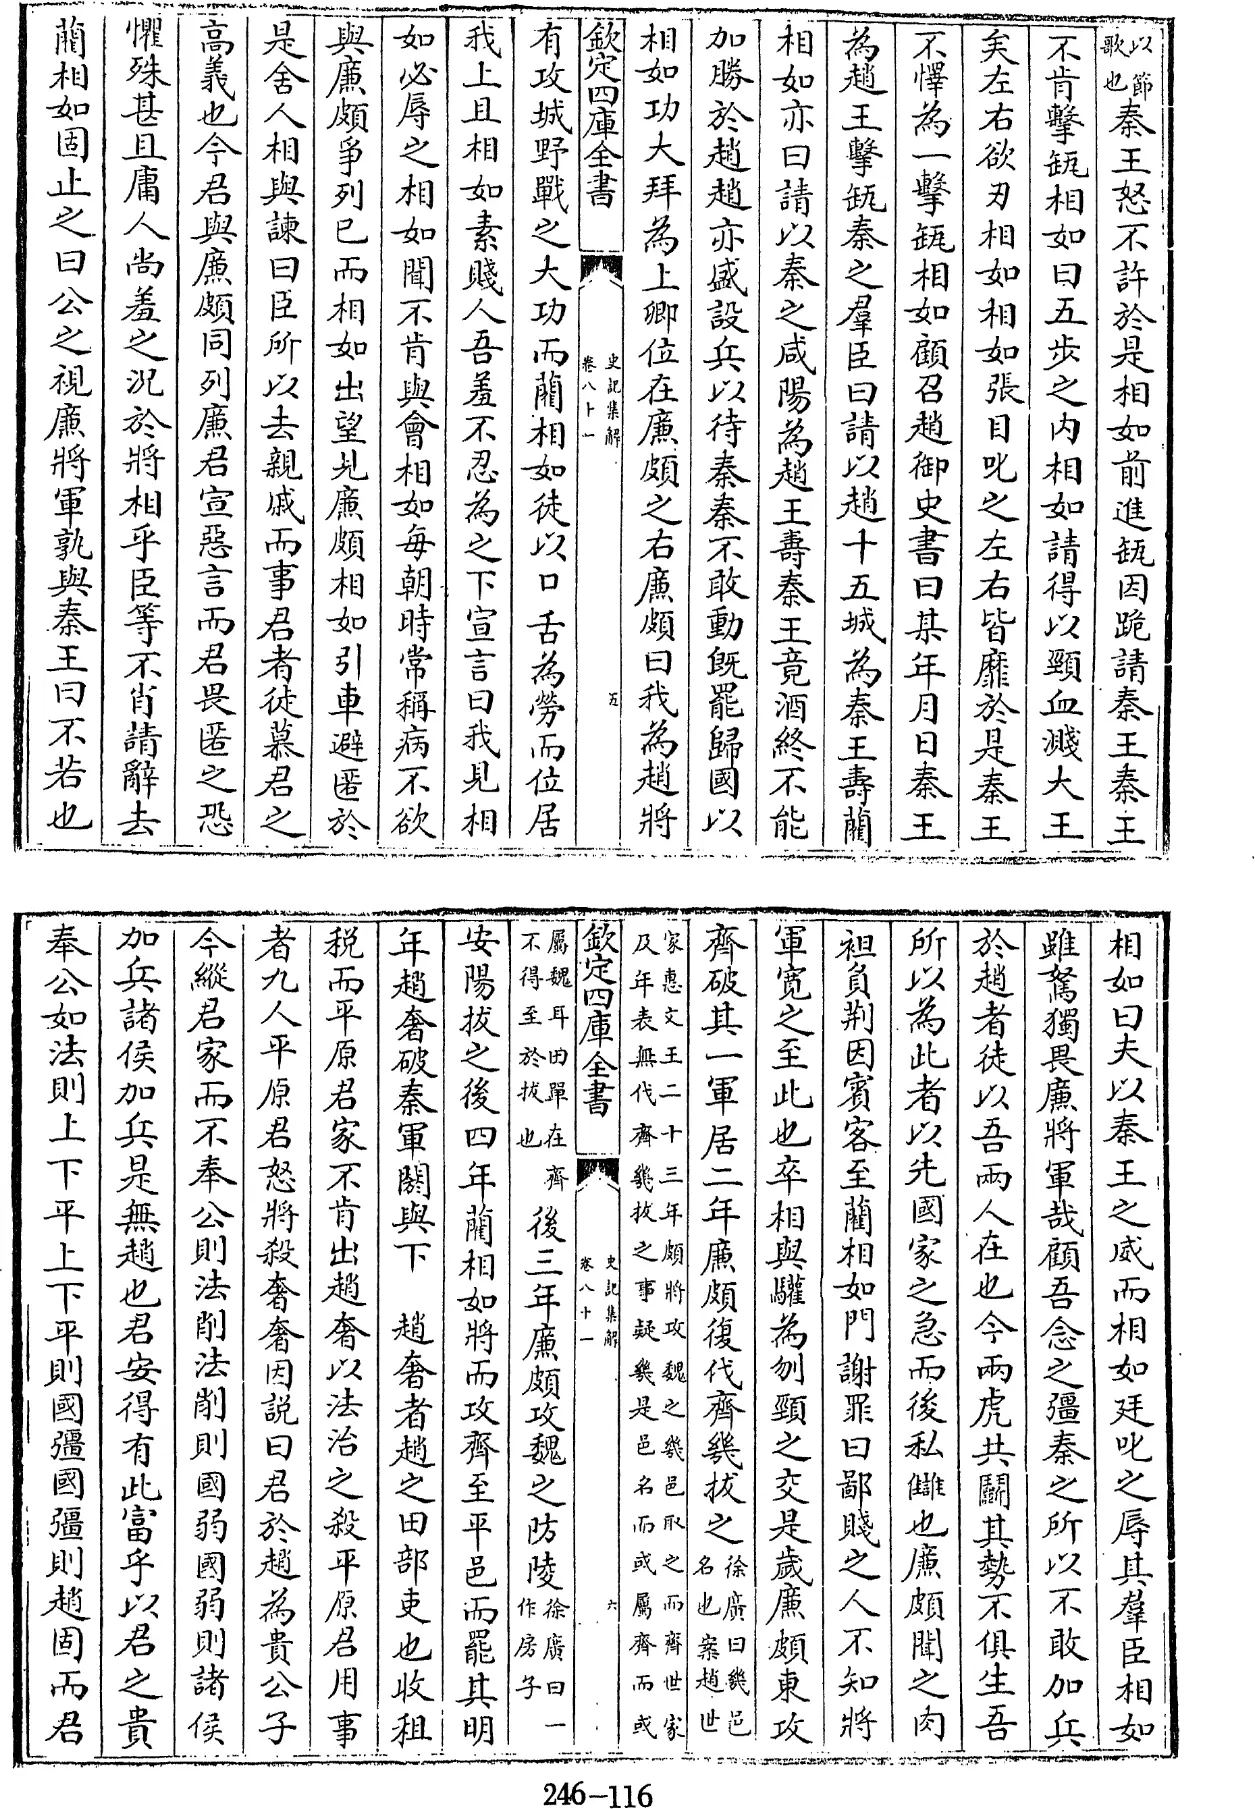 以節歌也秦王怒不許於是相如前進缻因跪請秦王秦王
不肯擊缻相如曰五步之内相如請得以頸血濺大王
矣左右欲刃相如相如張目叱之左右皆靡於是秦王
不懌為一擊缻相如顧召趙御史書曰某年月日秦王
為趙王擊缻秦之羣臣曰請以趙十五城為秦王壽藺
相如亦曰請以秦之咸陽為趙王壽秦王竟酒終不能
加勝於趙趙亦盛設兵以待秦秦不敢動既罷歸國以
相如功大拜為上卿位在廉頗之右廉頗曰我為趙將
欽定四庫全書
史記集解
卷八十一
五
有攻城野戰之大功而藺相如徒以口舌為勞而位居
我上且相如素賤人吾羞不忍為之下宣言曰我見相
如必辱之相如聞不肯與會相如每朝時常稱病不欲
與廉頗爭列已而相如出望見廉頗相如引車避匿於
是舍人相與諫曰臣所以去親戚而事君者徒慕君之
高義也今君與廉頗同列廉君宣惡言而君畏匿之恐
懼殊甚且庸人尚羞之況於將相乎臣等不肖請辭去
藺相如固止之曰公之視廉將軍孰與秦王曰不若也
相如曰夫以秦王之威而相如廷叱之辱其羣臣相如
雖駑獨畏廉將軍哉顧吾念之彊秦之所以不敢加兵
於趙者徒以吾兩人在也今兩虎共鬬其勢不俱生吾
所以為此者以先國家之急而後私讎也廉頗聞之肉
袒負荆因賓客至藺相如門謝罪曰鄙賤之人不知將
軍寛之至此也卒相與驩為刎頸之交是歲廉頗東攻
齊破其一軍居二年廉頗復伐齊幾拔之徐廣曰幾邑名也案趙世
家惠文王二十三年頗將攻魏之幾邑取之而齊世家
及年表無伐齊幾拔之事疑幾是邑名而或屬齊而或
欽定四庫全書
史記集解
卷八十一
六
屬魏耳田單在齊不得至於拔也後三年廉頗攻魏之防陵徐廣曰一作房子
安陽拔之後四年藺相如將而攻齊至平邑而罷其明
年趙奢破秦軍閼與下　趙奢者趙之田部吏也收租
税而平原君家不肯出趙奢以法治之殺平原君用事
者九人平原君怒將殺奢奢因説曰君於趙為貴公子
今縱君家而不奉公則法削法削則國弱國弱則諸侯
加兵諸侯加兵是無趙也君安得有此富乎以君之貴
奉公如法則上下平上下平則國彊國彊則趙固而君
246-116